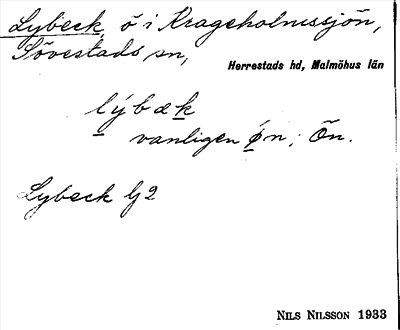 Lybeck, ö i Krageholmssjön,
Sövestads sn,
Herrestads hd, Malmöhus län
lýbæk
vanligen ǿn; Ön.
Lybeck Lj 2
NILS NILSSON 1933